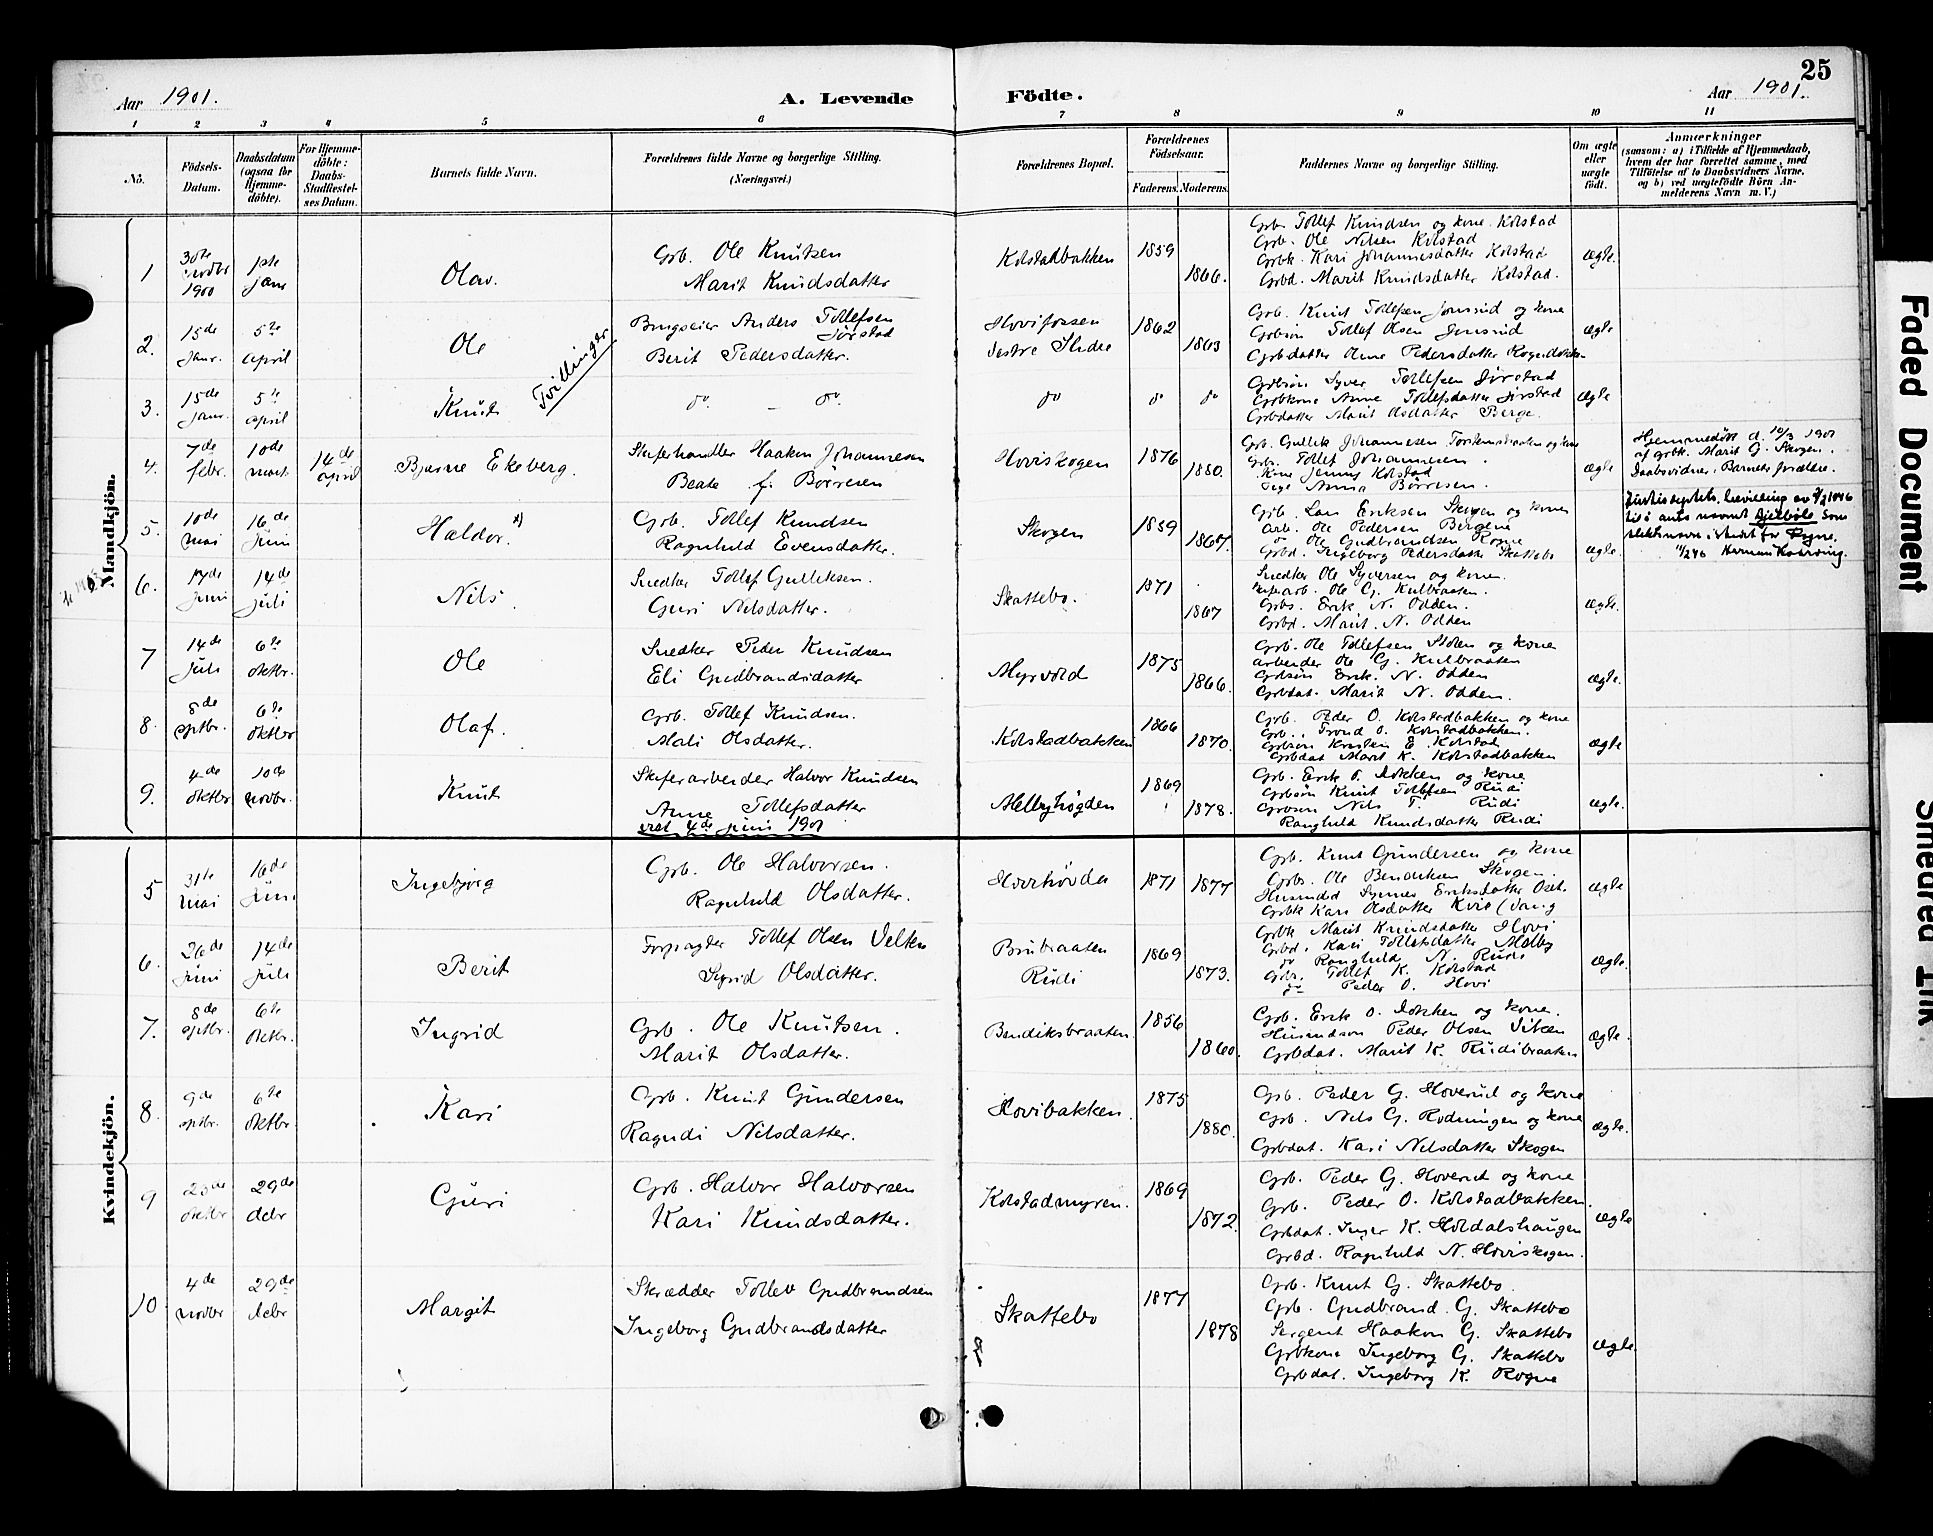 25
Aar 1901. A. Levende Födte. Aar 1901.
1 2 3 4 5 6 7 8 9 10 11
No.
Födsels-
Datum.
Daabsdatum
(ogsaa for
Hjemme-
döbte).
For Hjemme-
döbte:
Daabs-
Stadfæstel-
ses Datum.
Barnets fulde Navn.
Forældrenes fulde Navne og borgerlige Stilling.
(Næringsvei.)
Forældrenes Bopæl.
Forældrenes
Födselsaar.
Faderens. Moderens.
Faddernes Navne og borgerlige Stilling.
Om ægte
eller
uægte
födt.
Anmærkninger
(saasom: a) i Tilfælde af Hjemmedaab,
hvem der har forrettet samme, med
Tilföielse af to Daabsvidners Navne,
og b) ved uægtefödte Börn An-
melderens Navn m. V.)
Mandkjön.
1 30te novbr 1900 1ste janr Olav.
Grb. Ole Knutsen
Marit Knudsdatter
Kolstadbakken 1859 1866.
Grb. Tollef Knudsen og kone Kolstad
Grb. Ole Nilsen Kolstad
Grbk. Kari Johannesdatter Kolstad
Grbd. Marit Knudsdatter Kolstad.
ægte.
2. 15de janr. 5te april Ole
Tvillinger
Brugseier Anders Tollefsen
Jørstad
Berit Pedersdatter.
Hovifossen
Vestre Slidre 1862 1863
Grb. Knut Tollefsen Jonsrud og kone
Grbsøn Tollef Olsen Jonsrud
Grbdatter Anne Pedersdatter
ægte
3. 15de janr. 5te april Knut
do. - do.
do do do
Grbsøn Syver Tollefsen Jørstad
Grbkone Anne Tollefsdatter Jørstad
Grbdatter Marit Olsdatter Berge.
ægte
4. 7de febr. 10de mart. 14de april Bjarne Ekeberg.
Skiferhandler Haaken Johannesen
Beate f. Børresen
Hoviskogen 1876 1880.
Grb. Gullik Johannesen og kone
Grb. Tollef Johannesen.
Kone Jenny Kolstad
Pige Anna Børresen.
ægte
Hjemmedøbt d. 10/3 1901
af grbk. Marit G. Skogen.
Daabsvidner: Barnets forældre.
5. 10de mai 16de juni Haldor. x)
Grb. Tollef Knudsen
Ragnhild Evensdatter.
Skogen 1859 1867.
Grb. Lars Eriksen Skogen og kone
Arb. Ole Pedersen Bergene
do Ole Gudbrandsen Rogne
Grbd. Ingeborg Pedersdatter Skattebo
ægte.
6. 17de juni 14de juli Nils.
Snedker Tollef Gulliksen.
Guri Nilsdatter.
Skattebo. 1871 1867
Snedker Ole Syversen og kone.
Skiferarb. Ole G. Kulbraaten.
Grbs. Erik N. Odden.
Grbd. Marit. N. Odden
ægte.
7 14de juli 6te oktbr. Ole
Snedker Peder Knudsen
Eli Gudbrandsdatter
Myrvold 1875 1866.
Grb. Ole Tollefsen Stølen og kone
arbeider Ole G. Kulbraaten
Grbsøn Erik. N. Odden
Grbdat. Marit N. Odden.
ægte.
8. 8de sptbr. 6te oktbr Olaf.
Grb. Tollef Knudsen.
Mali Olsdatter.
Kolstadbakken 1866 1870.
Grb. Peder O. Kolstadbakken og kone
Grb. Trond O. Kolstadbakken.
Grbsøn Kristen E. Kolstad
Grbdat Marit K. Kolstadbakken
ægte
9. 4de oktbr 10de novbr. Knut
Skiferarbeider Halvor Knudsen
Anne Tollefsdatter
viet 4de juni 1901
Melbyhøgden 1869 1878.
Grb. Erik O. Dokken og kone
Grbsøn Knut Tollefsen Rudi
Grbsøn Nils T. Rudi
Ranghild Knudsdatter Rudi
ægte.
Kvindekjön.
5 31te mai 16de juni Ingebjørg
Grb. Ole Halvorsen.
Ragnhild Olsdatter.
Hovihøvda 1871 1877
Grb. Knut Gundersen og kone
Grbs. Ole Bendiksen Skogen.
Grbk Kari Olsdatter Kvie (Vang
ægte
6. 26de juni 14de juli Berit
Forpagter Tollef Olsen Velken
Sigrid Olsdatter.
Brubraaten
Rudi 1869 1873.
Grbk Marit Knudsdatter Hovi
Grbd. Kari Tollefsdatter Melby
do Ranghild N. Rudi
Grbs. Tollef K. Kolstad
do Peder O. Hovi
ægte.
7. 8de sptbr. 6te oktbr. Ingrid
Grb. Ole Knutsen.
Marit Olsdatter.
Bendiksbraaten 1856 1860.
Grb. Erik O. Dokken og kone.
Husmdsøn Peder Olsen Viken
Grbdat. Marit K. Rudibraaten
ægte.
8. 9de sptbr. 6te oktbr Kari
Grb. Knut Gundersen
Ragndi Nilsdatter.
Hovibakken. 1875 1880.
Grb. Peder G. Hoverud og kone
Grb. Nils G. Rodningen og kone
Grbdat. Kari Nilsdatter Skogen
ægte.
9 oktbr 29de debr Guri
Grb. Halvor Halvorsen
Kari Knudsdatter.
Kolstadmyren. 1869 1872.
Grb. Peder G. Hoverud og kone
Grb. Peder O. Kolstadbakken.
Grbdat. Inger K. Holdalshaugen
Grbd. Ragnhild N. Hoviskogen.
ægte
10 4de novbr 29de debr Margit
Skrædder Tollev Gudbrandsen
Ingeborg Gudbrandsdatter
Skattebo 1877 1878
Grb. Knut G. Skattebo.
Grb. Gudbrand. G. Skattebo
Sergent Haakon G. Skattebo
Grbkone Ingeborg G. Skattebo
Grbdat. Ingeborg K. Rogne
ægte.
Faded Document
Smeared Ink